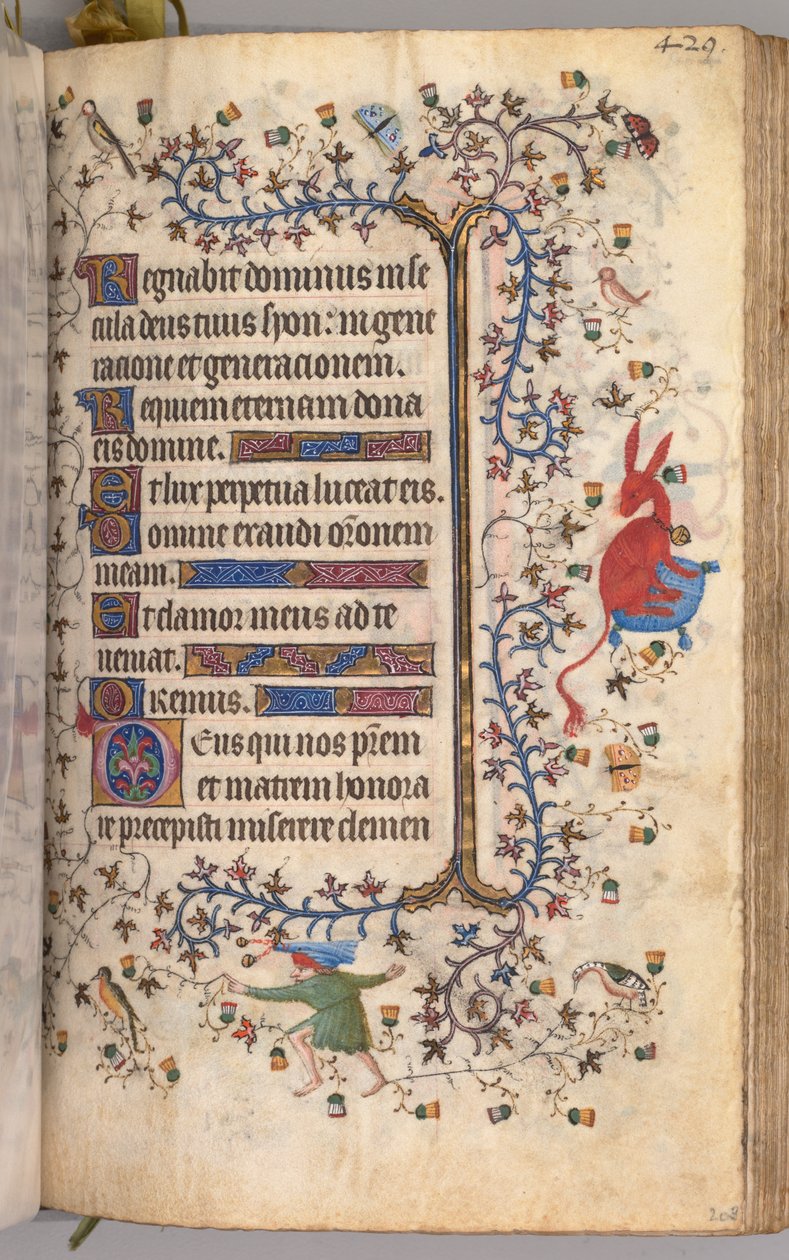 429.
Regnabit dominus in se
cula deus tuus syon: in gene
racione et generacionem.
Requiem eternam dona
eis domine.
Et lux perpetua luceat eis.
Domine exaudi or̄onem
meam.
Et clamor meus ad te
ueniat.
Oremus.
Deus qui nos pr̄em
et matrem honora
re precepisti miserere clemen
203